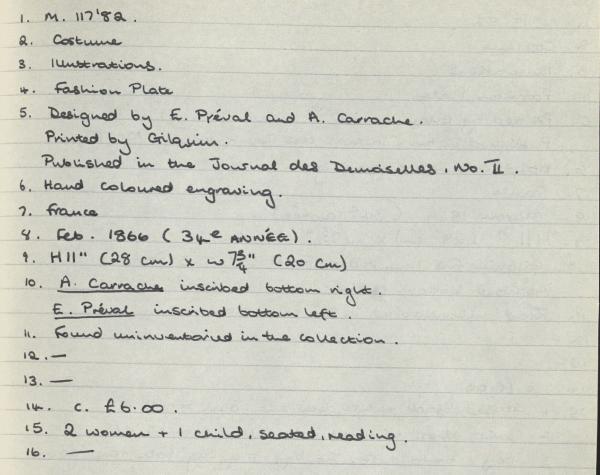 1. M. 117'82.
2. Costume
3. Illustrations.
4. Fashion Plate
5. Designed by E. Préval and A. Carrache.
Printed by Gilquin.
Published in the Journal des Demoiselles, No. II.
6. Hand coloured engraving.
7. France
8. Feb. 1866 (34e ANNÉE).
9. H 11" (28 cm) x w 7¾" (20 cm)
10. A. Carrache inscribed bottom right.
E. Préval inscribed bottom left.
11. Found uninventoried in the collection.
12. —
13. —
14. c. £6.00.
15. 2 women + 1 child, seated, reading.
16. —